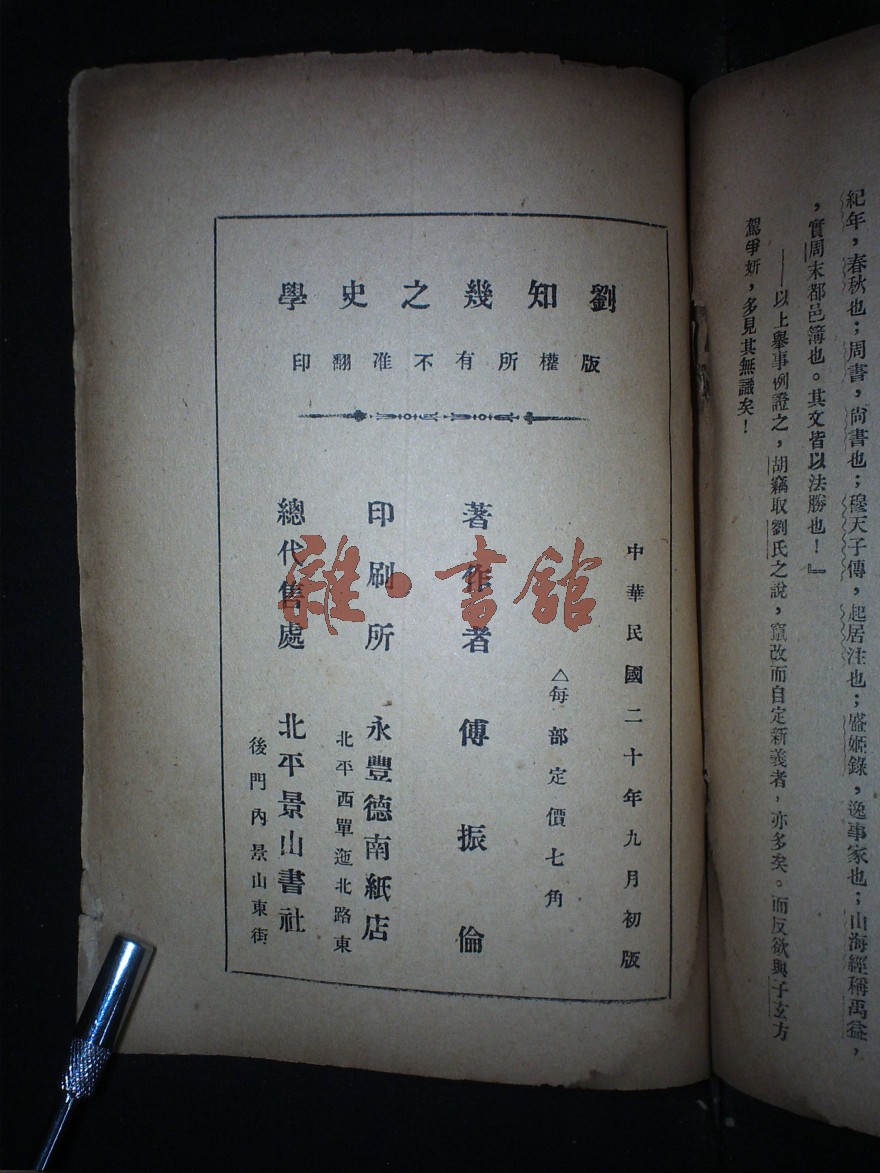 紀年，春秋也；周書，尚書也；穆天子傳，起居注也；盛姬錄，逸事家也；山海經稱禹益，
，實周末都邑簿也。其文皆以法勝也！』
——以上舉事例證之，胡竊取劉氏之說，竄改而自定新義者，亦多矣。而反欲與子玄方
駕爭妍，多見其無識矣！
劉知幾之史學
版權所有不准翻印
中華民國二十年九月初版
△每部定價七角
著作者 傅振倫
印刷所 永豐德南紙店
北平西單迤北路東
總代售處 北平景山書社
後門內景山東街
雜·書館